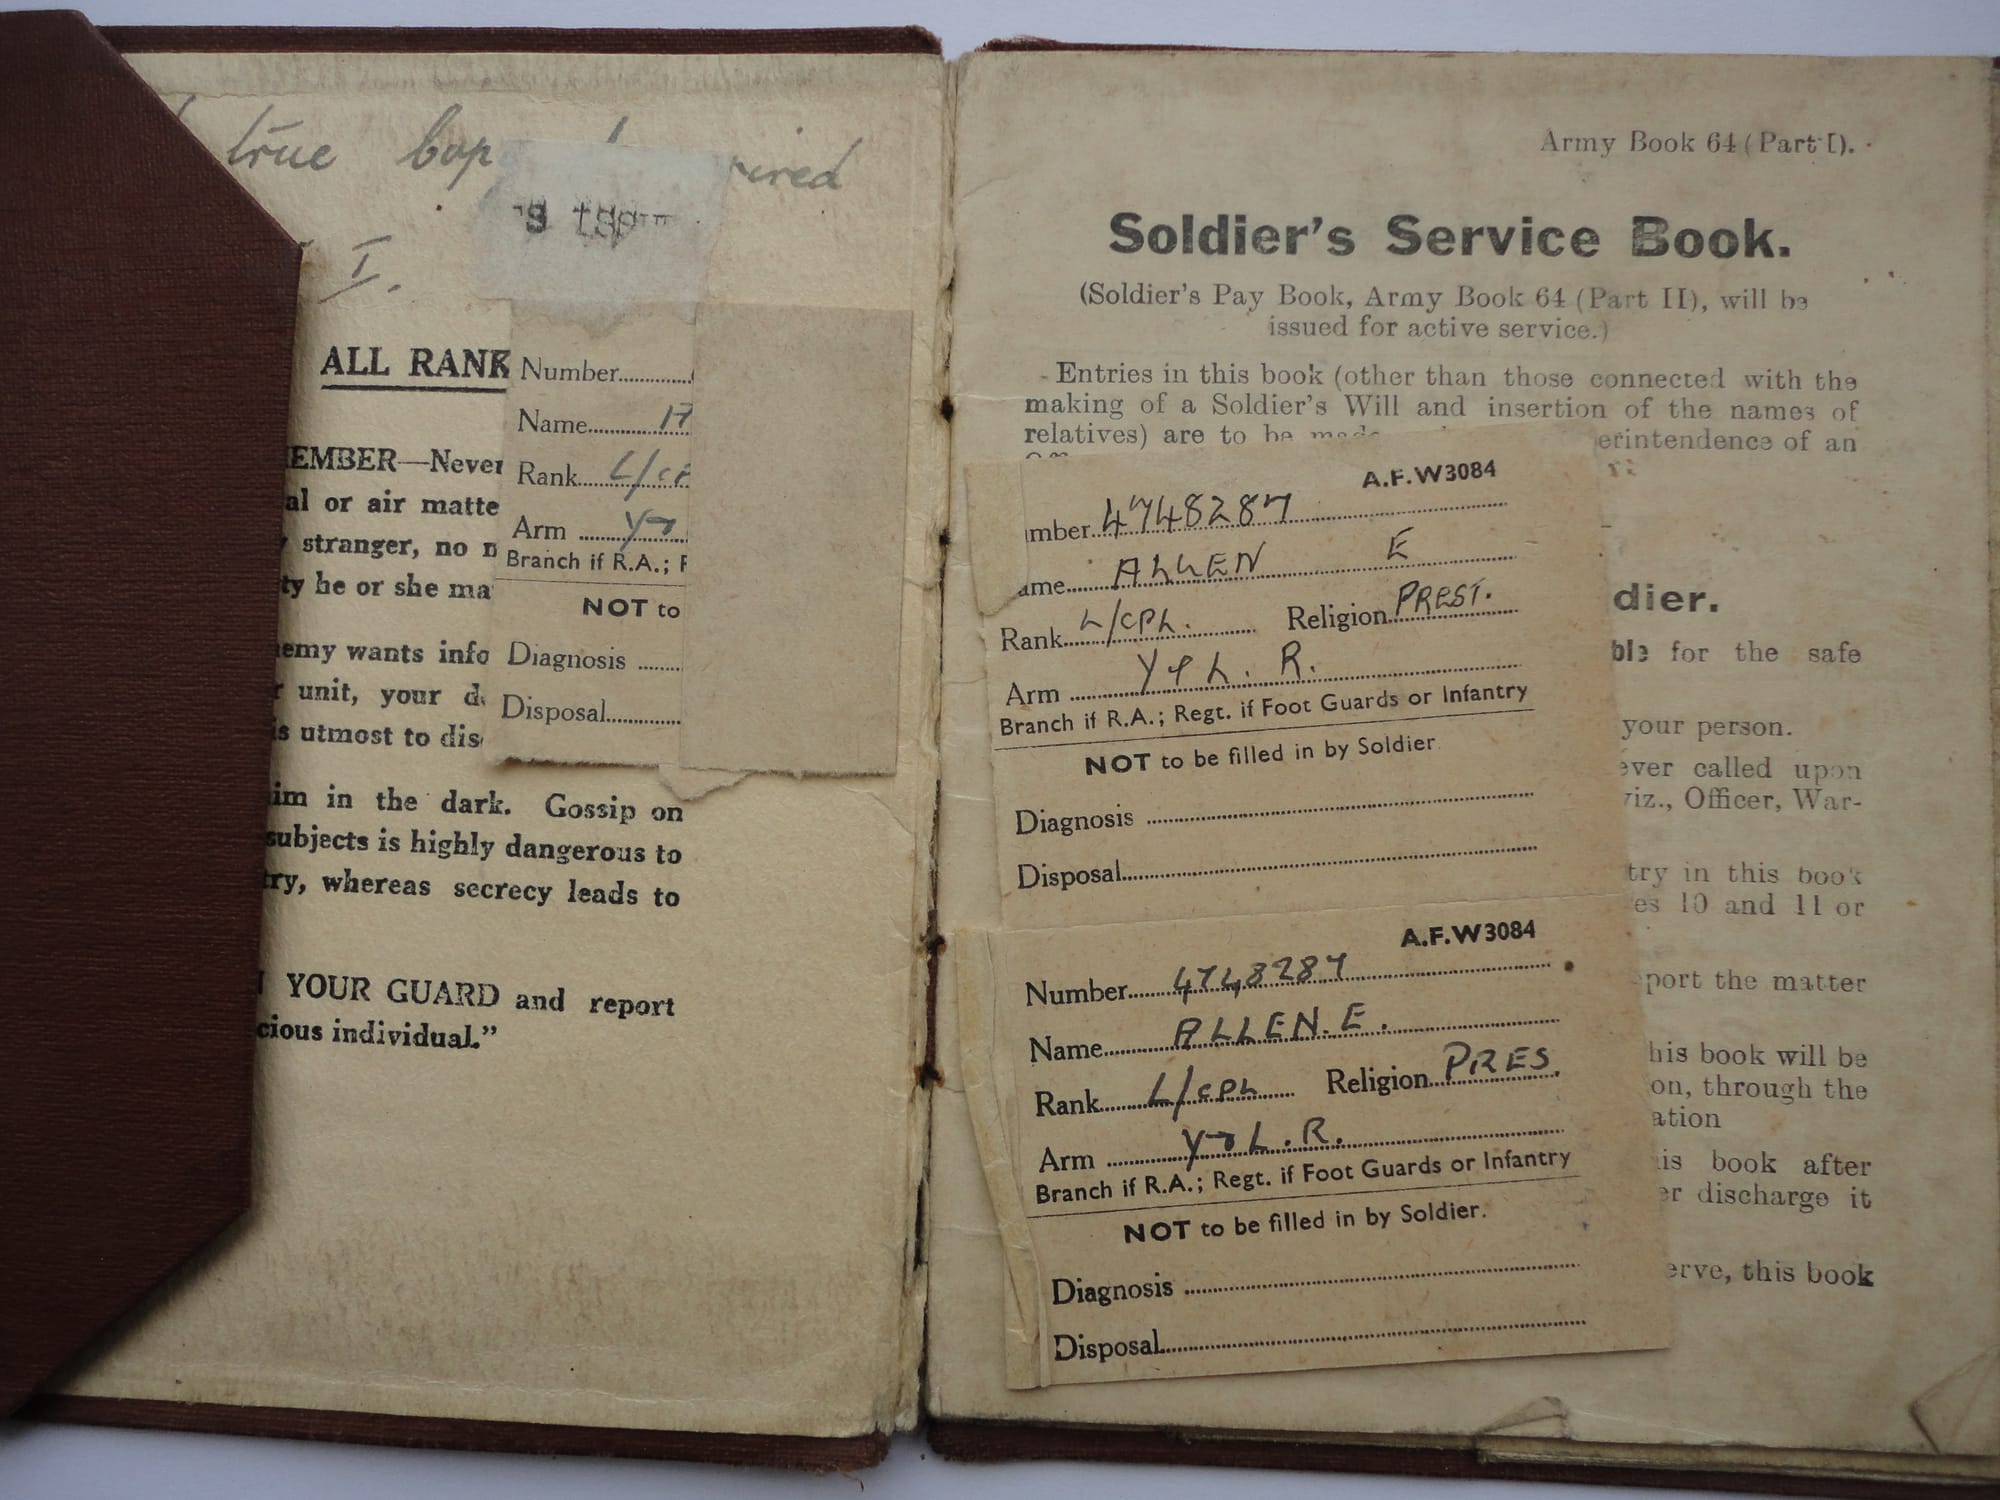 true
I.
ALL RANK
EMBER—Never
al or air matte
stranger, no
ty he or she ma
emy wants info
unit, your
s utmost to dis
im in the dark. Gossip on
subjects is highly dangerous to
ry, whereas secrecy leads to
YOUR GUARD and report
cious individual."
Number
Name
Rank L/c
Arm Y
Branch if R.A.;
NOT to
Diagnosis
Disposal
Army Book 64 (Part I).
Soldier's Service Book.
(Soldier's Pay Book, Army Book 64 (Part II), will be
issued for active service.)
Entries in this book (other than those connected with the
making of a Soldier's Will and insertion of the names of
relatives) are to be made erintendence of an
A.F.W3084
mber 4748287
ame ALLEN E
Rank L/CPL. Religion PREST.
Arm Y & L. R.
Branch if R.A.; Regt. if Foot Guards or Infantry
NOT to be filled in by Soldier
Diagnosis
Disposal
A.F.W3084
Number 4748287
Name ALLEN. E.
Rank L/CPL Religion PRES.
Arm Y & L. R.
Branch if R.A.; Regt. if Foot Guards or Infantry
NOT to be filled in by Soldier.
Diagnosis
Disposal
dier.
ble for the safe
your person.
ever called upon
viz., Officer, War-
try in this book
es 10 and 11 or
port the matter
his book will be
on, through the
ation
is book after
er discharge it
erve, this book